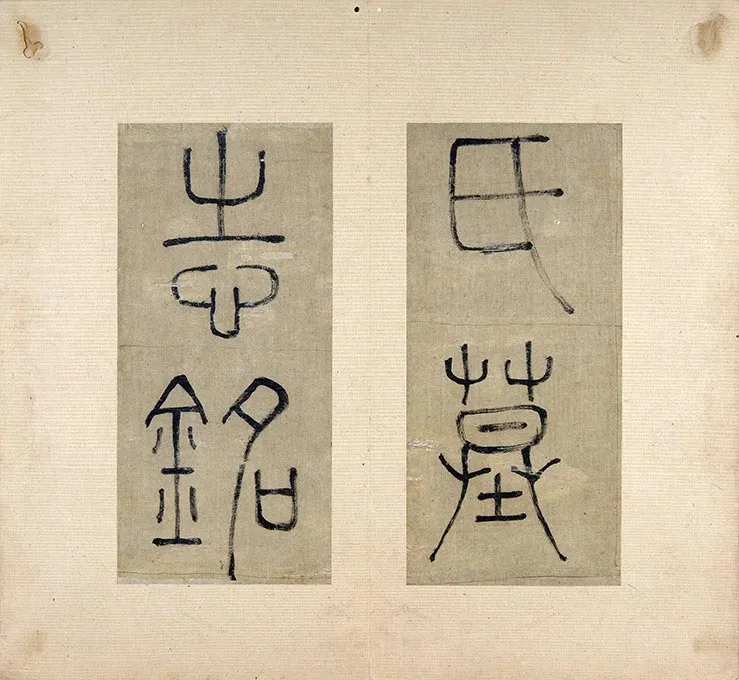 氏墓
志銘